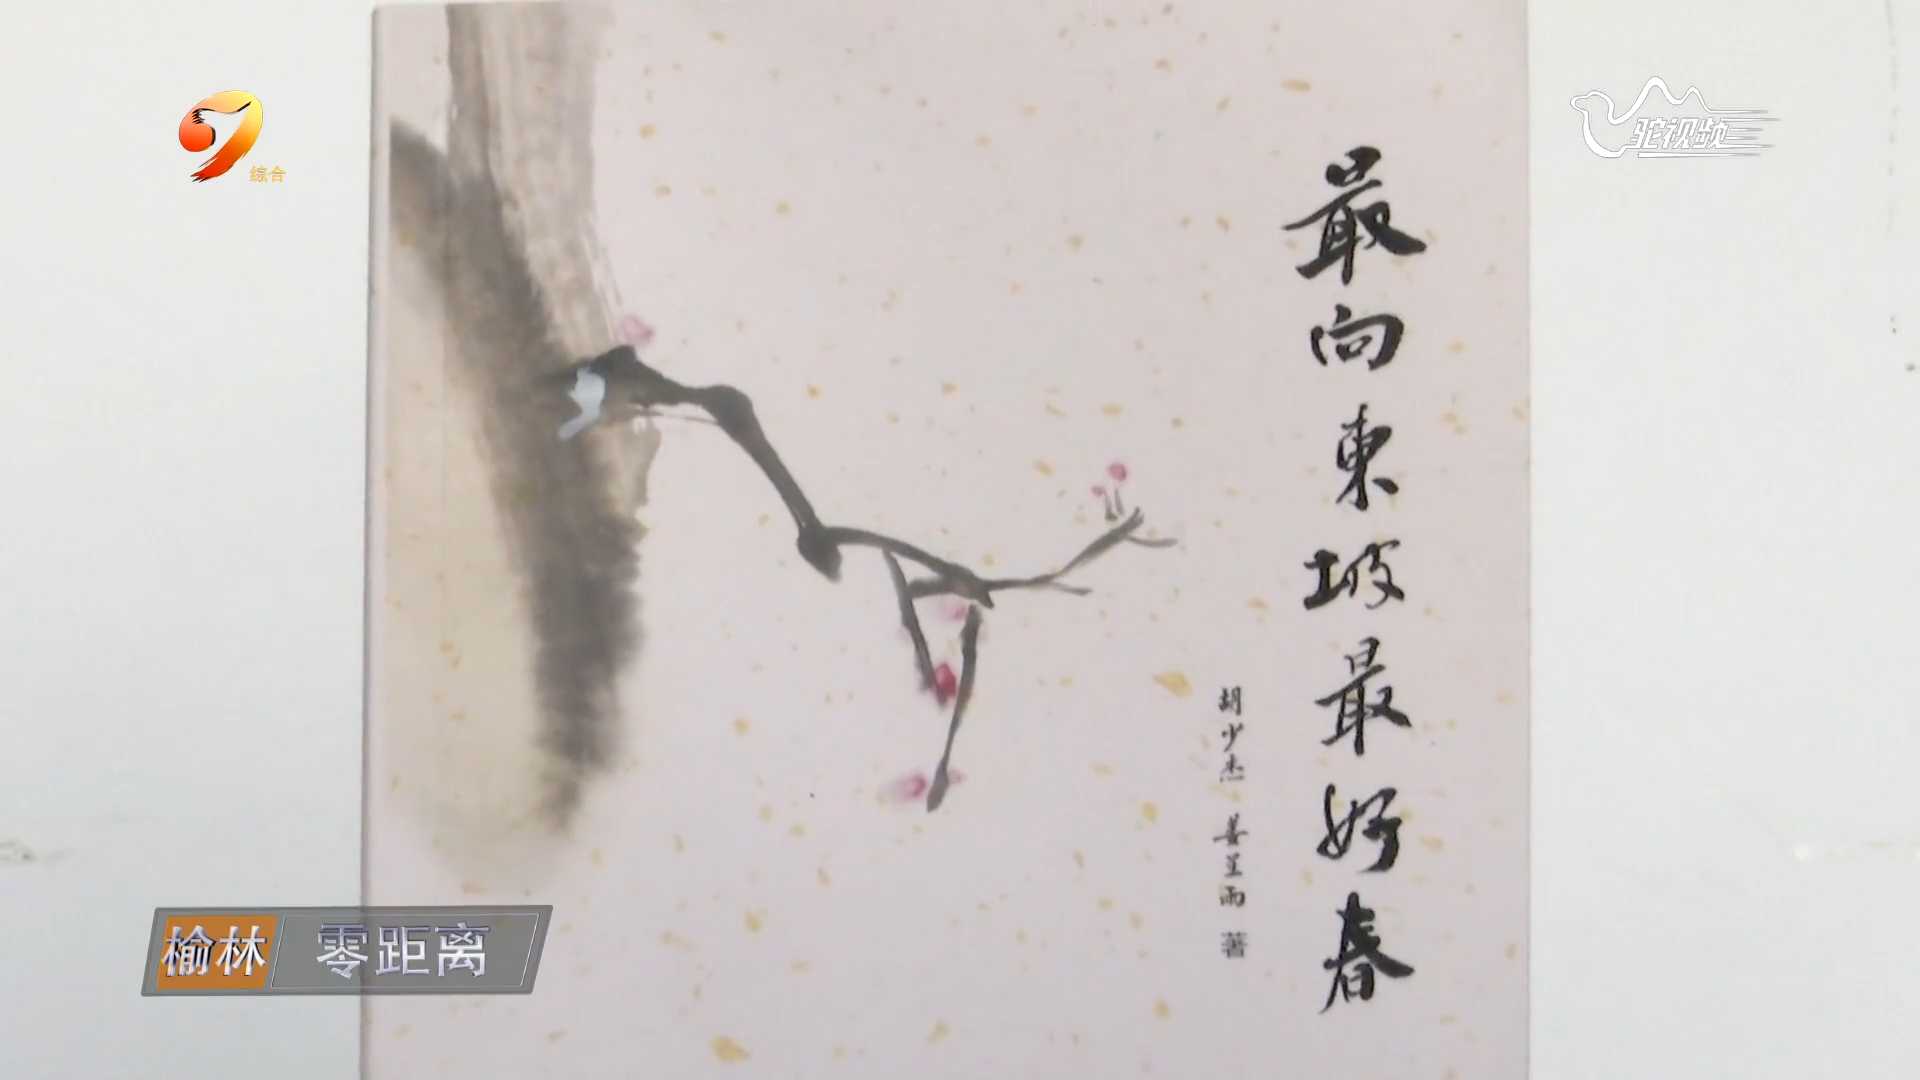 综合
驼视频
最向東坡最好春
胡少杰 姜呈雨 著
榆林 零距离